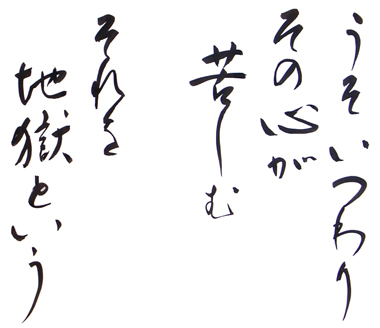 うそいつわり
その心が
苦しむ
それを
地獄という